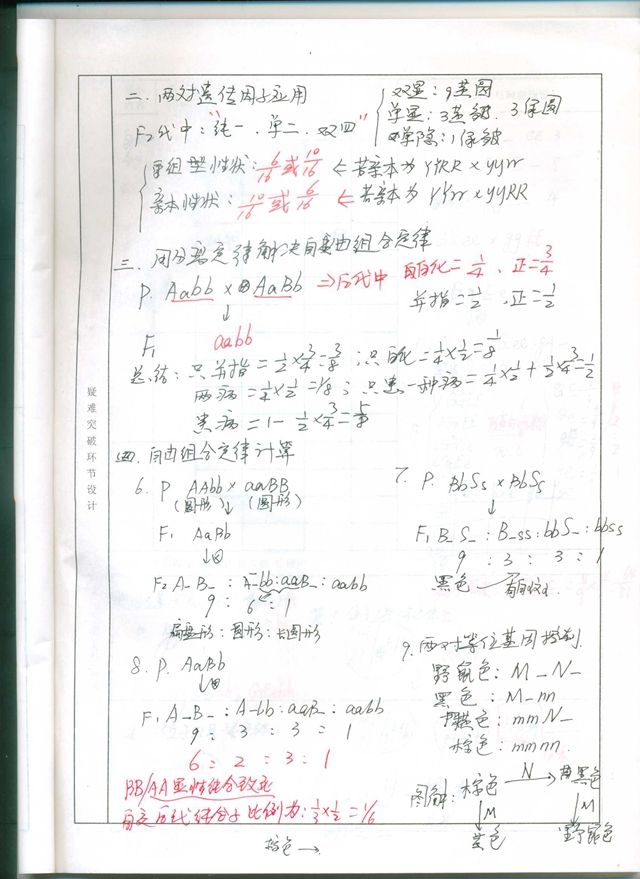 疑难突破环节设计
二. 两对遗传因子应用
F₂代中:"纯一. 单二. 双四"
双显: 9黄圆
单显: 3黄皱. 3绿圆
双隐: 1绿皱
重组型性状: 6/16 或 10/16 ← 若亲本为 YYRR × yyrr
亲本性状: 10/16 或 6/16 ← 若亲本为 YYrr × yyRR
三. 用分离定律解决自由组合定律
P. Aabb × AaBb ⇒ F₁代中 白化=1/4、正=3/4
↓ 并指=1/2 . 正=1/2
F₁ aabb
总结: 只并指=1/2×3/4=3/8 ; 只白化=1/4×1/2=1/8
两病=1/4×1/2=1/8 ; 只患一种病=1/4×1/2+1/2×3/4=1/2
患病=1-1/2×3/4=5/8
四. 自由组合定律计算
6. P AAbb × aaBB
(圆形)↓(圆形)
F₁ AaBb
↓⊗
F₂ A_B_ : A_bb:aaB_ : aabb
9 : 6 : 1
扁盘形: 圆形: 长圆形
7. P. BbSs × BbSs
↓
F₁ B_S_ : B_ss : bbS_ : bbss
9 : 3 : 3 : 1
黑色
8. P. AaBb
↓⊗
F₁ A_B_ : A_bb : aaB_ : aabb
9 : 3 : 3 : 1
6 : 2 : 3 : 1
BB/AA显性纯合致死
代 比例为: 1/3×1/2=1/6
9. 两对等位基因控制
野鼠色: M_N_
黑色: M_nn
黄色: mmN_
棕色: mmnn
图解: 棕色 N→ 黄色
↓M ↓M
黑色 野鼠色
棕色→